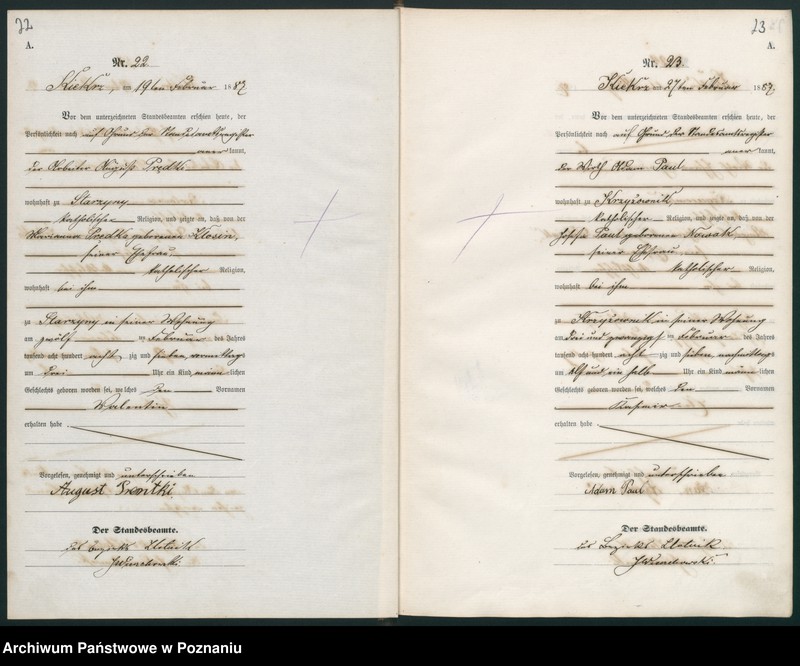 22
A.
Nr. 22
Kiekrz, am 19ten Februar 1887
Vor dem unterzeichneten Standesbeamten erschien heute, der
Persönlichkeit nach auf Grund des Standesamtsregister
anerkannt,
der Arbeiter August
wohnhaft zu Starzyny
katholischer Religion, und zeigte an, daß von der
Marianna geborenen
seiner Ehefrau
katholischer Religion,
wohnhaft bei ihm
zu Starzyny in seiner Wohnung
am zwölf ten Februar des Jahres
tausend acht hundert acht zig und sieben vormittags
um drei Uhr ein Kind männlichen
Geschlechts geboren worden sei, welches den Vornamen
Valentin
erhalten habe.
Vorgelesen, genehmigt und unterschrieben
August
Der Standesbeamte.
des Bezirks
23
A.
Nr. 23
Kiekrz am 27ten Februar 1887.
Vor dem unterzeichneten Standesbeamten erschien heute, der
Persönlichkeit nach auf Grund der Standesamtsregister
anerkannt,
der Wirth Adam Paul
wohnhaft zu Krzyżownik
katholischer Religion, und zeigte an, daß von der
Paul geborenen Nowak
seiner Ehefrau
katholischer Religion,
wohnhaft bei ihm
zu Krzyżownik in seiner Wohnung
am drei und zwanzigsten Februar des Jahres
tausend acht hundert acht zig und sieben nachmittags
um elf und ein halb Uhr ein Kind männlichen
Geschlechts geboren worden sei, welches den Vornamen
Kasimir
erhalten habe.
Vorgelesen, genehmigt und unterschrieben
Adam Paul
Der Standesbeamte.
des Bezirks
Archiwum Państwowe w Poznaniu